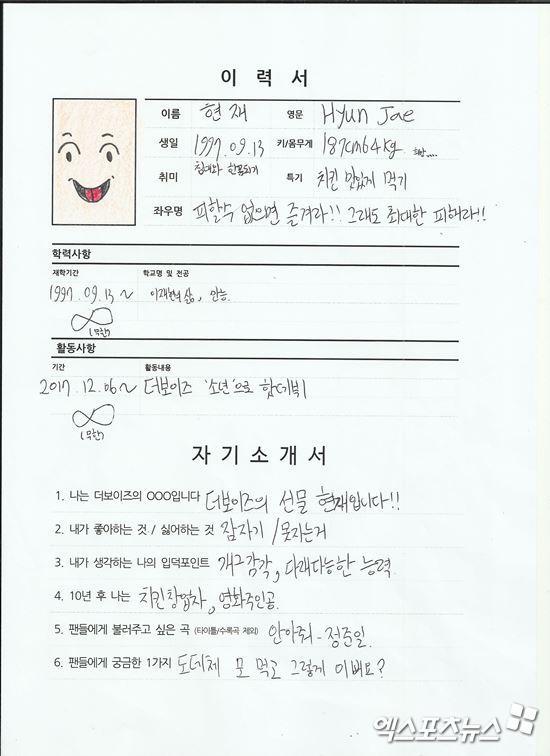 이 력 서
이름 현 재 영문 Hyun Jae
생일 1997.09.13 키/몸무게 187cm 64kg
취미 침대와 한몸되기 특기 치킨 맛있게 먹기
좌우명 피할수 없으면 즐겨라!! 그래도 최대한 피해라!!
학력사항
재학기간 학교명 및 전공
1997.09.13 ~ 이재현의 삶, 인생.
∞
(무한)
활동사항
기간 활동내용
2017.12.06 ~ 더보이즈 '소년'으로 데뷔
∞
(무한)
자 기 소 개 서
1. 나는 더보이즈의 OOO입니다 더보이즈의 선물 현재입니다!!
2. 내가 좋아하는 것 / 싫어하는 것 잠자기 / 못자는거
3. 내가 생각하는 나의 입덕포인트 개그감각, 다재다능한 능력.
4. 10년 후 나는 치킨창업자, 영화주인공.
5. 팬들에게 불러주고 싶은 곡 (타이틀/수록곡 제외) 안아줘 - 정준일.
6. 팬들에게 궁금한 1가지 도데체 모 먹고 그렇게 이뻐요?
엑스포츠뉴스